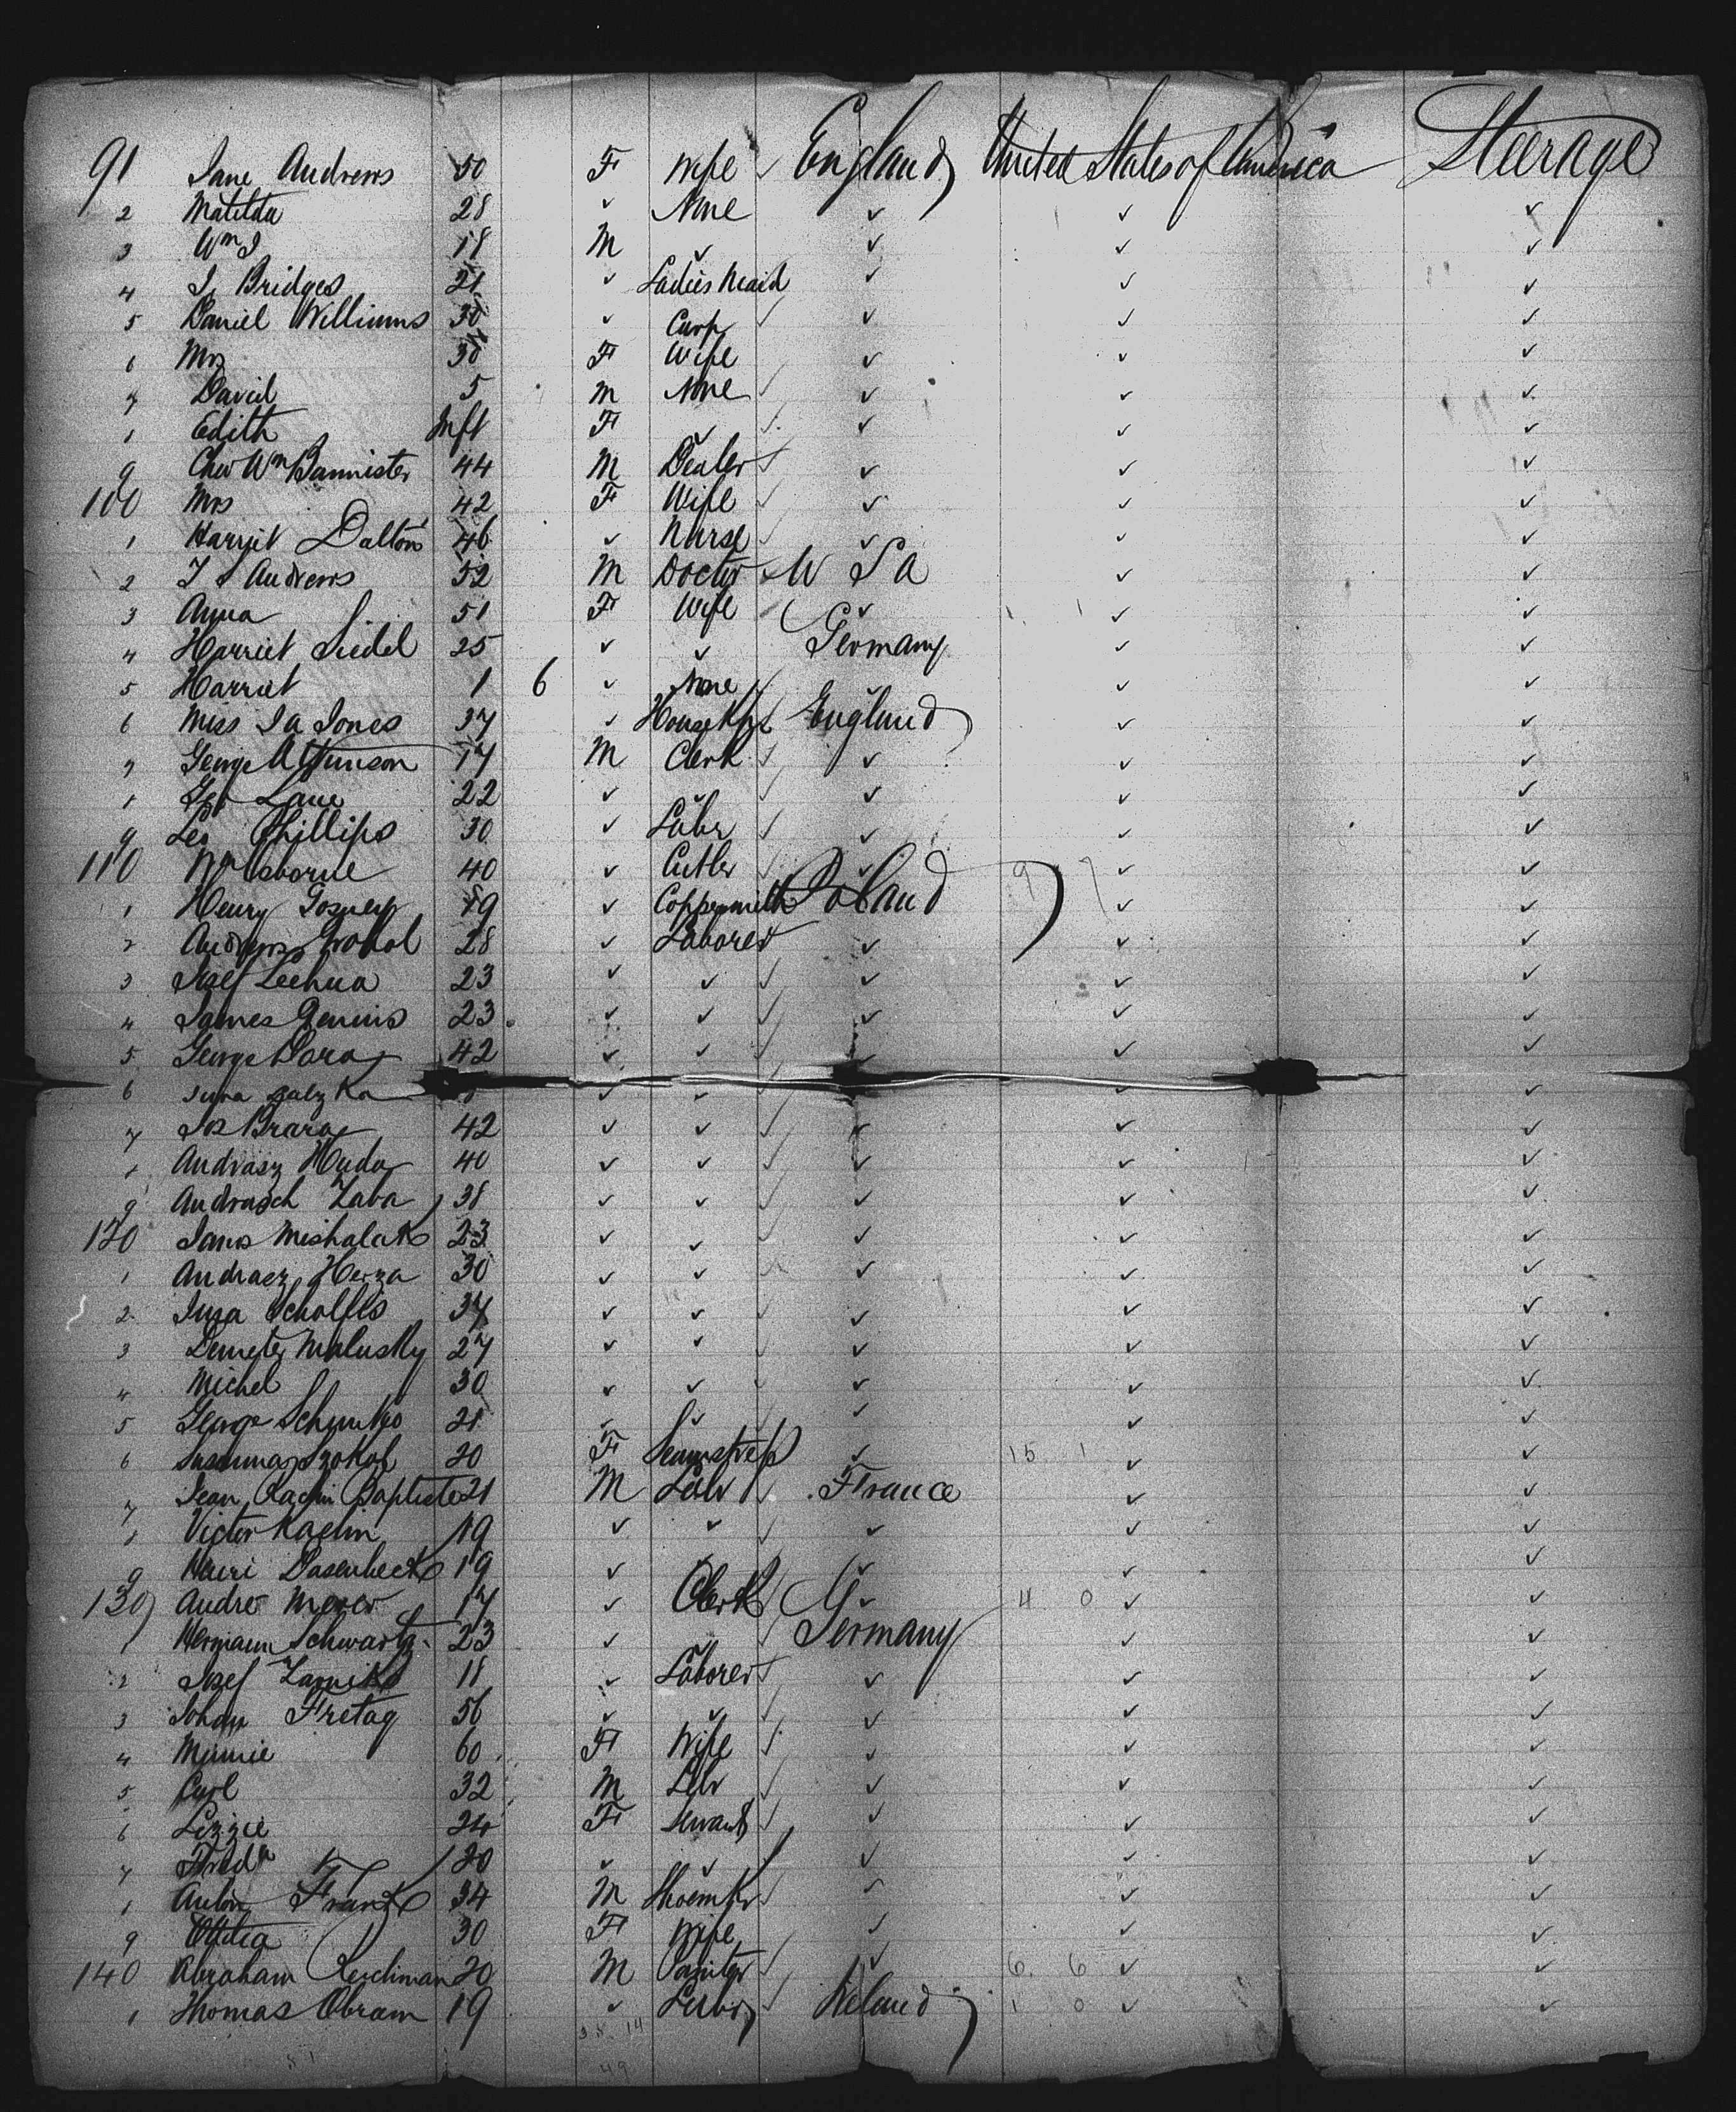 91 Jane Andrews 50 F Wife ✓ England United States of America Steerage
2 Matilda 28 ✓ None ✓ ✓ ✓
3 Wm J 18 M ✓ ✓ ✓ ✓
4 J Bridges 21 ✓ Ladies Maid ✓ ✓ ✓
5 Daniel Williams 30 ✓ Carp ✓ ✓ ✓ ✓
6 Mrs 30 F Wife ✓ ✓ ✓
7 David 5 M None ✓ ✓ ✓ ✓
8 Edith Inft F ✓ ✓ ✓ ✓ ✓
9 Wm Bannister 44 M Dealer ✓ ✓ ✓ ✓
100 Mrs 42 F Wife ✓ ✓ ✓ ✓
1 Harriet Dalton 46 ✓ Nurse ✓ ✓ ✓ ✓
2 J Andrews 52 M Doctor U S A ✓ ✓
3 Anna 51 F Wife ✓ ✓ 1 1 ✓ ✓
4 Harriet Siedel 25 ✓ ✓ Germany ✓ ✓
5 Harriet 1 6 ✓ None ✓ ✓ ✓ ✓
6 Miss J a Jones 37 ✓ House Kpr England ✓ ✓
7 George 17 M Clerk ✓ ✓ ✓ ✓
8 Geo Lane 22 ✓ ✓ ✓ ✓ ✓ ✓
9 Phillips 30 ✓ Labr ✓ ✓ ✓ ✓
110 Wm Osborne 40 ✓ Cutler ✓ ✓ 9 7 ✓ ✓
1 Henry 19 ✓ Coppersmith Poland ✓ ✓
2 28 ✓ Laborer ✓ ✓ ✓
3 Josef Lechua 23 ✓ ✓ ✓ ✓ ✓ ✓
4 James 23 ✓ ✓ ✓ ✓ ✓ ✓
5 George 42 ✓ ✓ ✓ ✓ ✓ ✓
6 ✓ ✓ ✓ ✓ ✓
7 Jos 42 ✓ ✓ ✓ ✓ ✓ ✓
8 Andrasz Huda 40 ✓ ✓ ✓ ✓ ✓ ✓
9 Andrasch Zaba 38 ✓ ✓ ✓ ✓ ✓ ✓
120 Janos Mishalak 23 ✓ ✓ ✓ ✓ ✓ ✓
1 Andrasz 30 ✓ ✓ ✓ ✓ ✓ ✓
2 37 ✓ ✓ ✓ ✓ ✓ ✓
3 Demeter Malusky 27 ✓ ✓ ✓ ✓ ✓
4 Michel 30 ✓ ✓ ✓ ✓ ✓ ✓
5 George 21 ✓ ✓ ✓ ✓ ✓ ✓
6 Susanna Szokol 20 F Seamstress ✓ 15 1 ✓ ✓
7 Jean Baptiste 21 M Labr ✓ France ✓ ✓
8 Victor 19 ✓ ✓ ✓ ✓ ✓ ✓
9 Henri Dasenbeck 19 ✓ ✓ ✓ ✓ ✓
130 Andre Meyer 17 ✓ Clerk ✓ 4 0 ✓ ✓
1 Hermann Schwartz 23 ✓ ✓ Germany ✓ ✓
2 Josef 18 ✓ Laborer ✓ ✓ ✓ ✓
3 Johan Fretag 56 ✓ ✓ ✓ ✓ ✓ ✓
4 Minnie 60 F Wife ✓ ✓ ✓ ✓
5 Carl 32 M Labr ✓ ✓ ✓ ✓
6 Lizzie 24 F Servant ✓ ✓ ✓ ✓
7 Freda 20 ✓ ✓ ✓ ✓ ✓ ✓
8 Anton Frank 34 M Shoemkr ✓ ✓ ✓ ✓
9 Ottilia 30 F Wife ✓ ✓ ✓
140 Abraham 20 M Painter ✓ ✓ 6 6 ✓ ✓
1 Thomas Obram 19 ✓ Labr ✓ Ireland 1 0 ✓ ✓
35 14
49